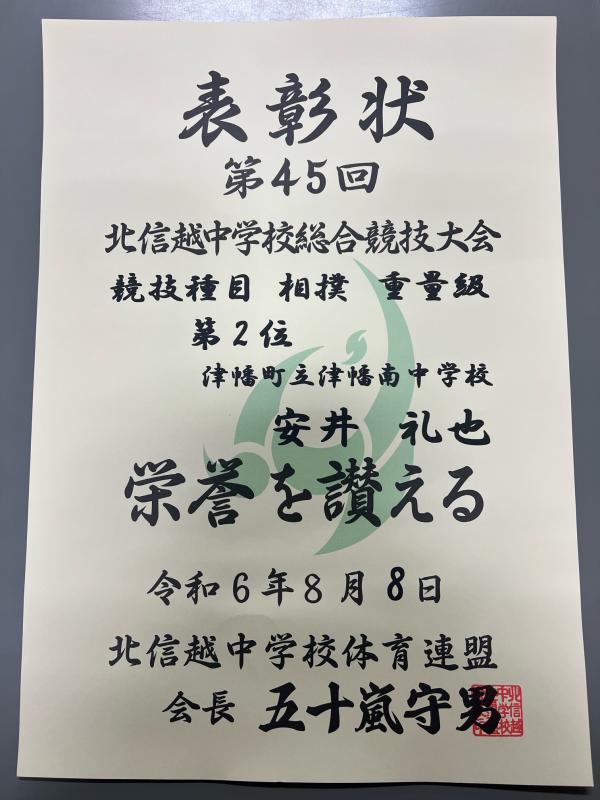 表彰状
第45回
北信越中学校総合競技大会
競技種目 相撲 重量級
第2位
津幡町立津幡南中学校
安井 礼也
栄誉を讃える
令和6年8月8日
北信越中学校体育連盟
会長 五十嵐守男